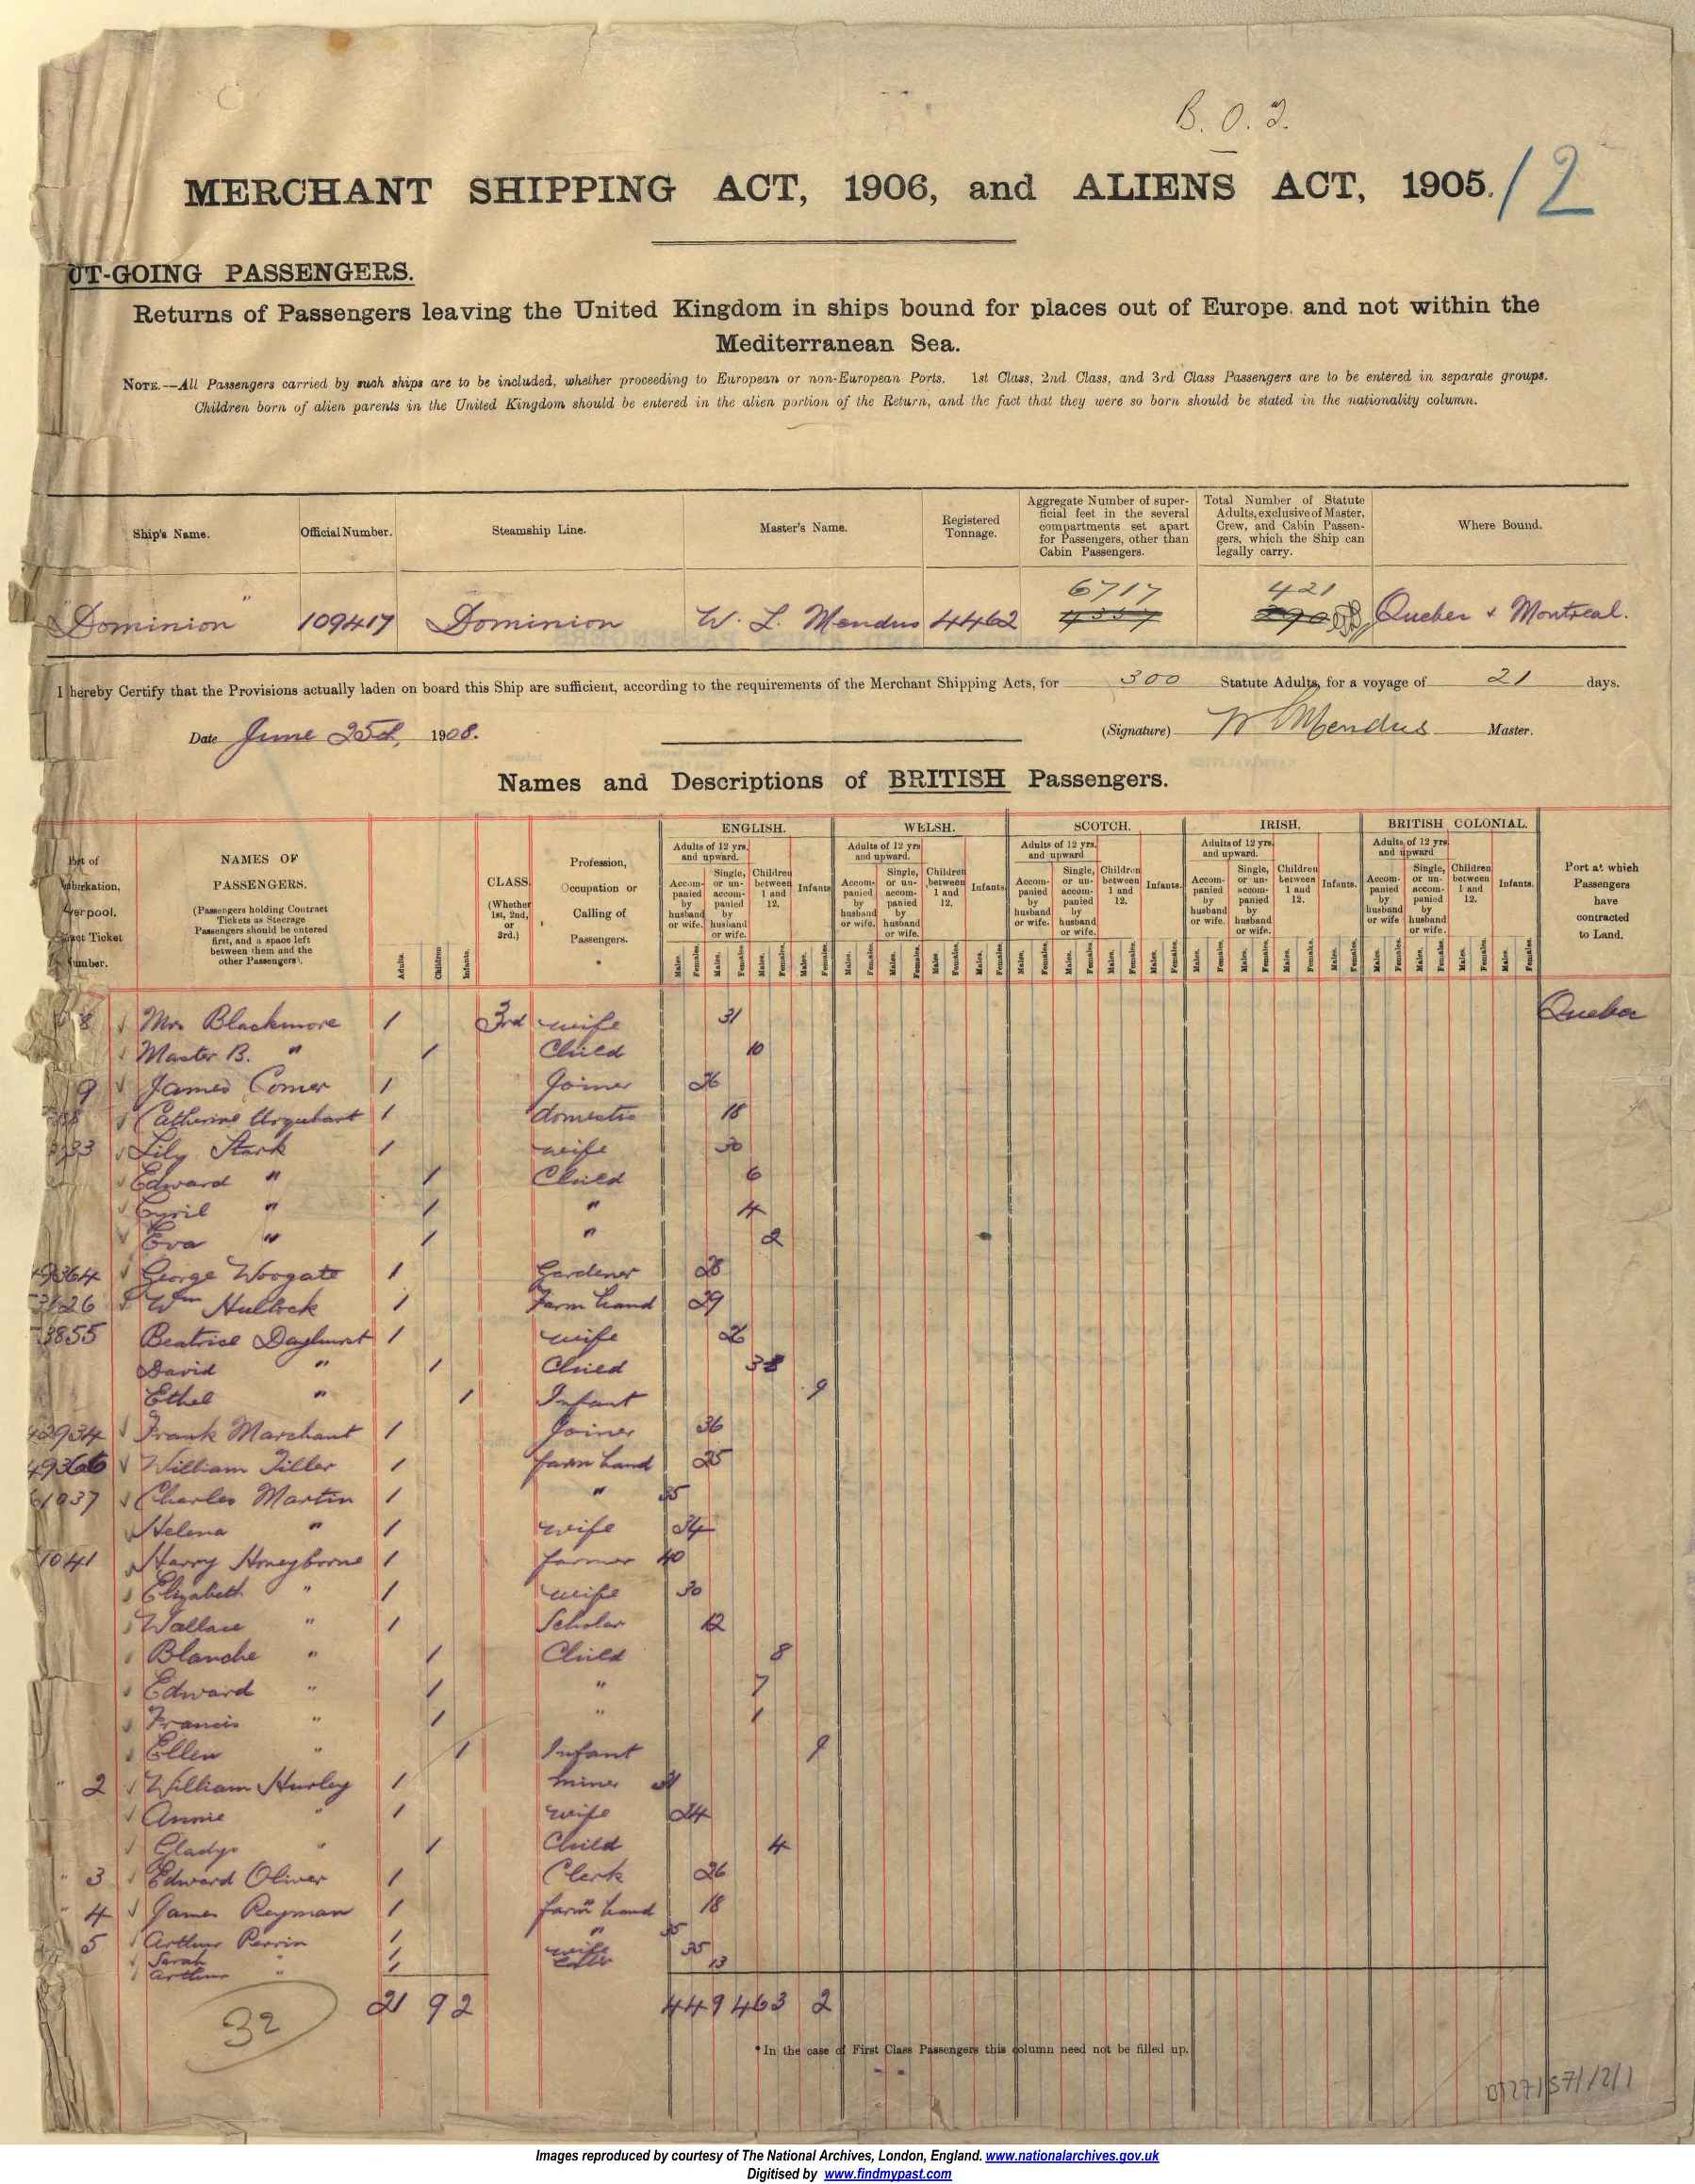 B. O. 2.
MERCHANT SHIPPING ACT, 1906, and ALIENS ACT, 1905.
12
UT-GOING PASSENGERS.
Returns of Passengers leaving the United Kingdom in ships bound for places out of Europe. and not within the
Mediterranean Sea.
NOTE.—All Passengers carried by such ships are to be included, whether proceeding to European or non-European Ports. 1st Class, 2nd Class, and 3rd Class Passengers are to be entered in separate groups.
Children born of alien parents in the United Kingdom should be entered in the alien portion of the Return, and the fact that they were so born should be stated in the nationality column.
Ship's Name. Official Number. Steamship Line. Master's Name. Registered Tonnage. Aggregate Number of superficial feet in the several compartments set apart for Passengers, other than Cabin Passengers. Total Number of Statute Adults, exclusive of Master, Crew, and Cabin Passengers, which the Ship can legally carry. Where Bound.
6717 421
"Dominion" 109417 Dominion W. L. Mendus 4462 4357 290 Quebec + Montreal.
I hereby Certify that the Provisions actually laden on board this Ship are sufficient, according to the requirements of the Merchant Shipping Acts, for 300 Statute Adults, for a voyage of 21 days.
Date June 25th, 1908. (Signature) W L Mendus Master.
Names and Descriptions of BRITISH Passengers.
NAMES OF PASSENGERS.
(Passengers holding Contract Tickets as Steerage Passengers should be entered first, and a space left between them and the other Passengers).
Adults. Children Infants.
CLASS. (Whether 1st, 2nd, or 3rd.)
Profession, Occupation or Calling of Passengers. *
ENGLISH. WELSH. SCOTCH. IRISH. BRITISH COLONIAL.
Adults of 12 yrs. and upward.
Accompanied by husband or wife. Single, or unaccompanied by husband or wife. Children between 1 and 12. Infants.
Males. Females.
Port at which Passengers have contracted to Land.
8 Mrs Blackmore 1 3rd wife 31 Quebec
Master B. " 1 Child 10
9 James Comer 1 Joiner 26
Catherine Urquhart 1 domestic 18
Lily Stark 1 wife 30
Edward " 1 Child 6
Cyril " 1 " 4
Eva " 1 " 2
49364 George Woogate 1 Gardener 28
Wm Hullock 1 Farm hand 29
3855 Beatrice Dayhurst 1 wife 26
David " 1 Child 3
Ethel " 1 Infant 9
42934 Frank Marchant 1 Joiner 36
49366 William Tiller 1 farm hand 25
61037 Charles Martin 1 " 35
Helena " 1 wife 34
1041 Harry Honeyborne 1 farmer 40
Elizabeth " 1 wife 30
Wallace " 1 Scholar 12
Blanche " 1 Child 8
Edward " 1 " 7
Francis " 1 " 1
Ellen " 1 Infant 9
" 2 William Hurley 1 miner 31
Annie " 1 wife 24
Gladys " 1 Child 4
" 3 Edward Oliver 1 Clerk 26
" 4 James Reyman 1 farm hand 18
5 Arthur Perrin 1 " 35
Sarah " 1 wife 35
Arthur " 1 13
21 9 2 4 4 9 4 6 3 2
32
* In the case of First Class Passengers this column need not be filled up.
BT27/571/2/1
Images reproduced by courtesy of The National Archives, London, England. www.nationalarchives.gov.uk
Digitised by www.findmypast.com